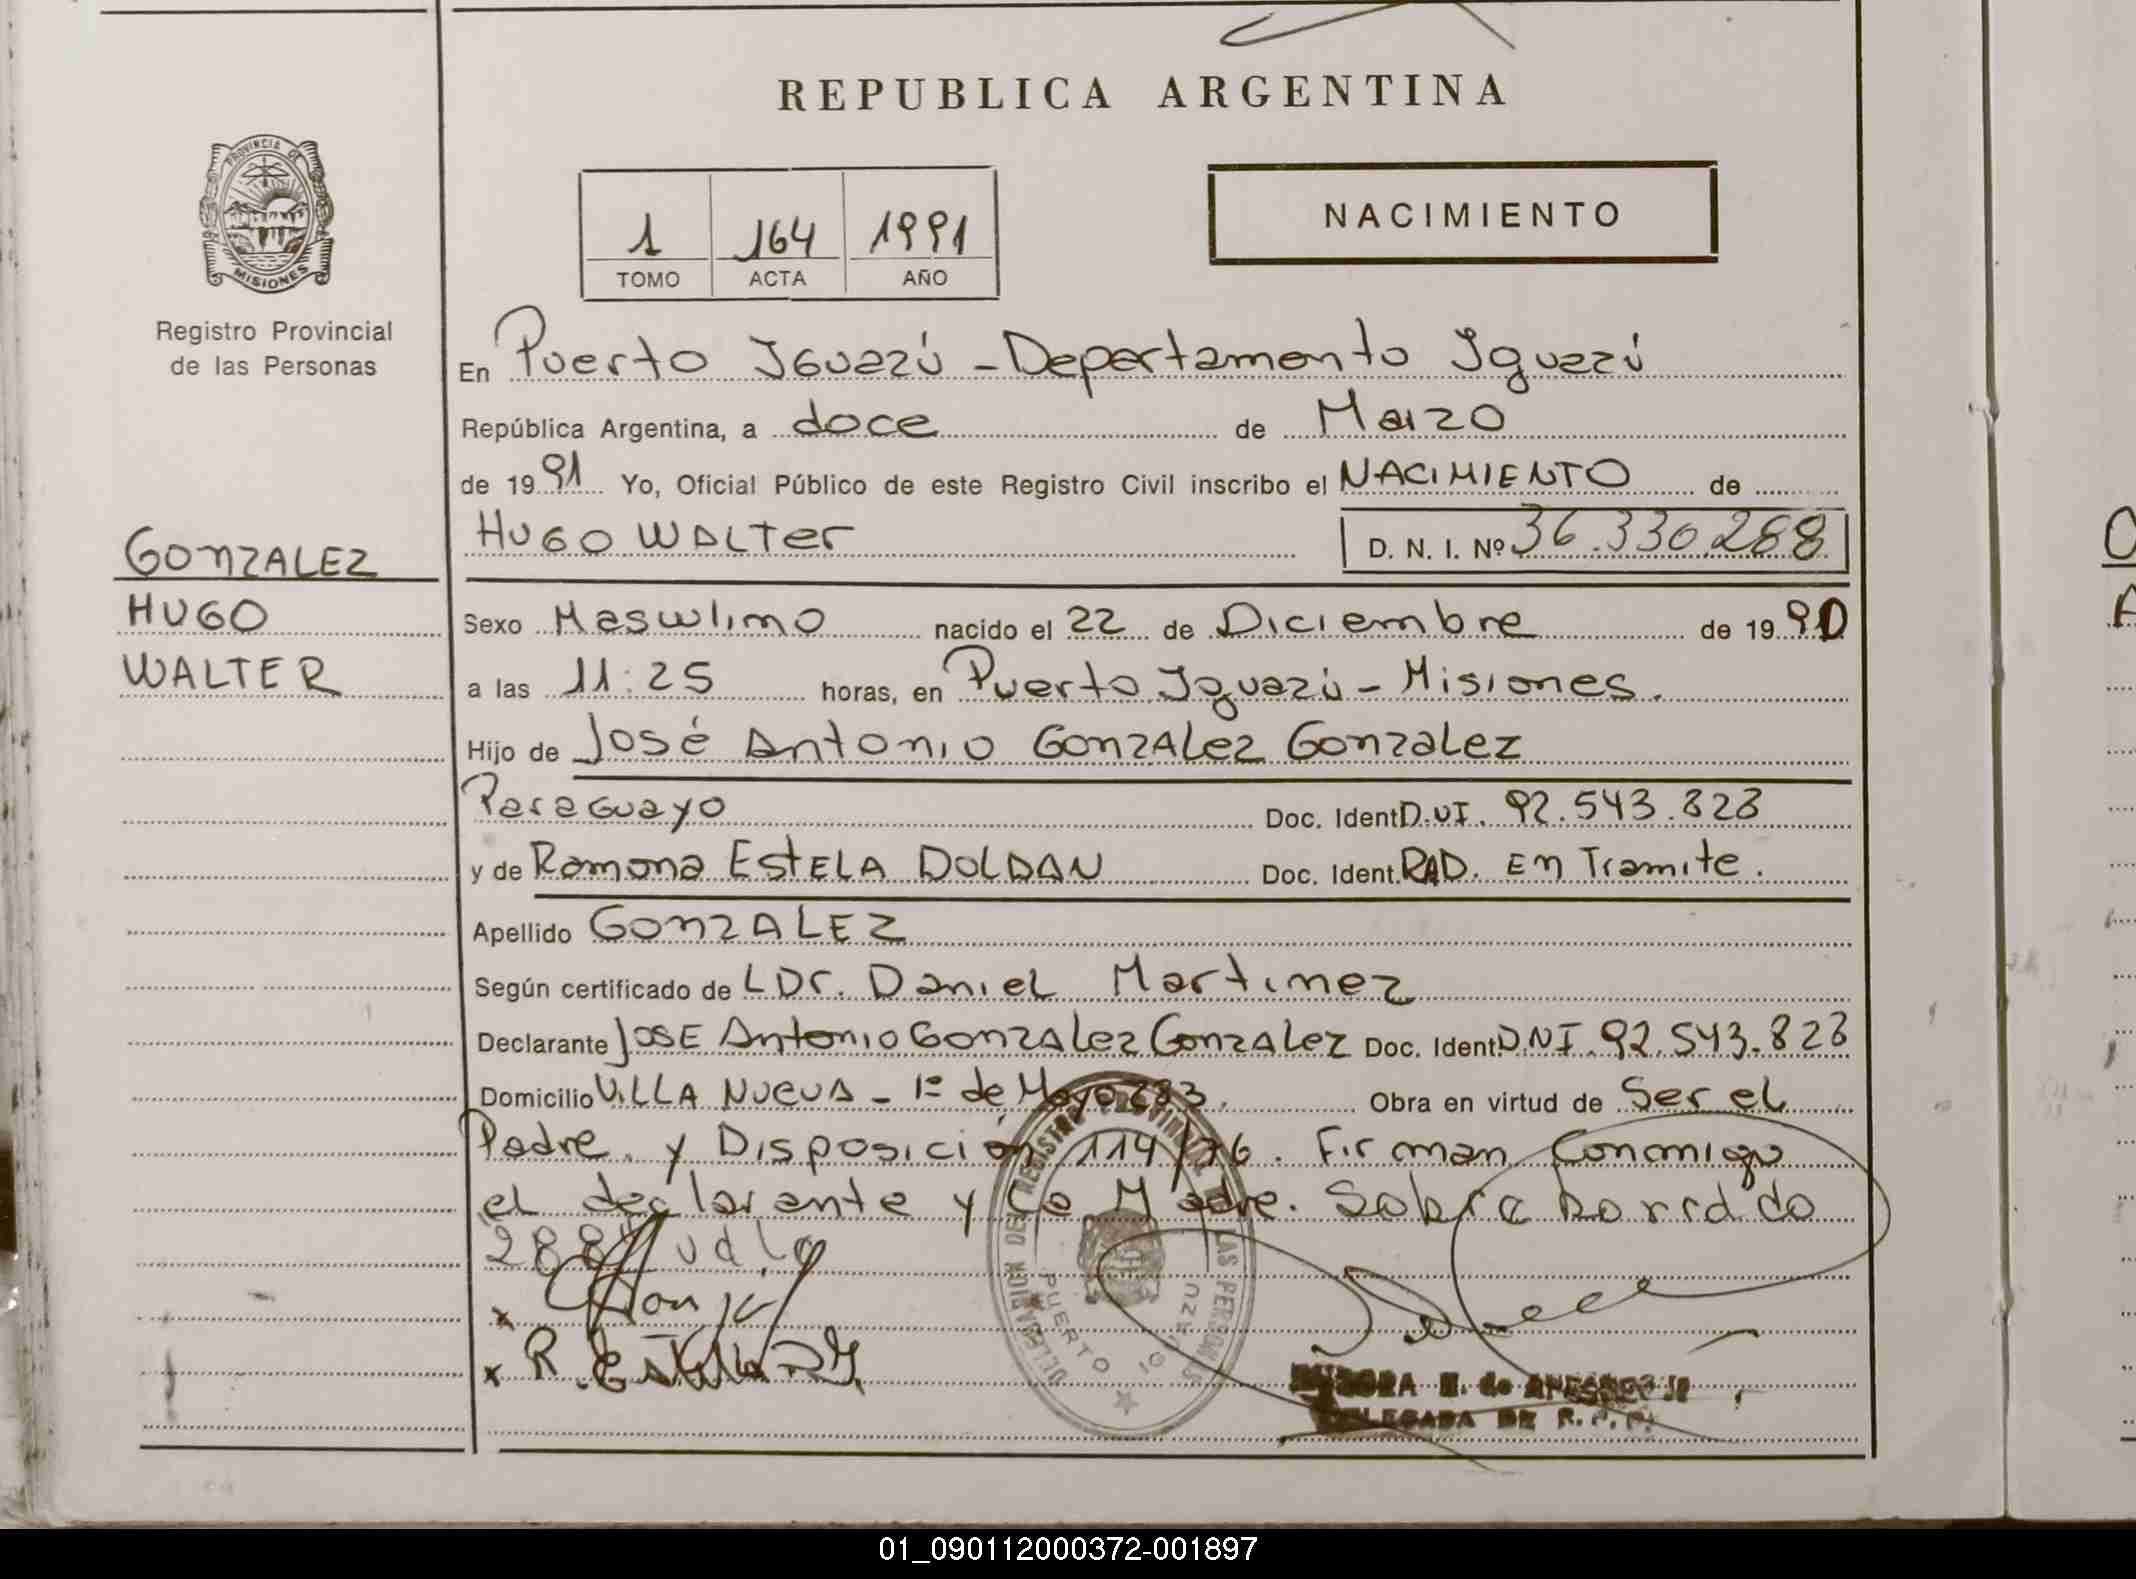 REPUBLICA ARGENTINA
PROVINCIA DE
MISIONES
Registro Provincial
de las Personas
1 164 1991
TOMO ACTA AÑO
NACIMIENTO
En Puerto Iguazú - Departamento Iguazú
República Argentina, a doce de Marzo
de 1991 Yo, Oficial Público de este Registro Civil inscribo el NACIMIENTO de
HUGO WALTER D. N. I. Nº 36.330.288
GONZALEZ
HUGO
WALTER
Sexo Masculino nacido el 22 de Diciembre de 1990
a las 11:25 horas, en Puerto Iguazú - Misiones.
Hijo de José Antonio GONZALEZ GONZALEZ
Paraguayo Doc. Ident. D.NI. 92.543.823
y de Ramona ESTELA DOLDAN Doc. Ident. RAD. En Tramite.
Apellido GONZALEZ
Según certificado de L Dr. Daniel Martinez
Declarante JOSE Antonio Gonzalez Gonzalez Doc. Ident. D.NI. 92.543.823
Domicilio VILLA NUEVA - 1º de Mayo 283. Obra en virtud de Ser el
Padre y Disposición 114/76. Firman Conmigo
el declarante y la Madre. Sobre borrado
288
DELEGACION DEL REGISTRO PROVINCIAL DE LAS PERSONAS
PUERTO IGUAZU
x
x R. Estela D
DELEGADA DE R.P.P.
01_090112000372-001897